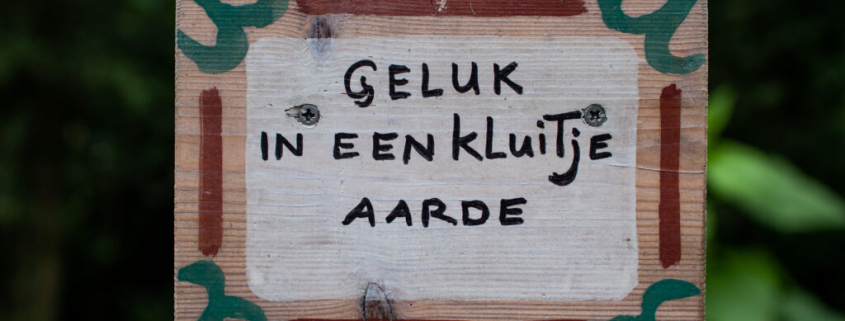 GELUK
IN EEN KLUITJE
AARDE